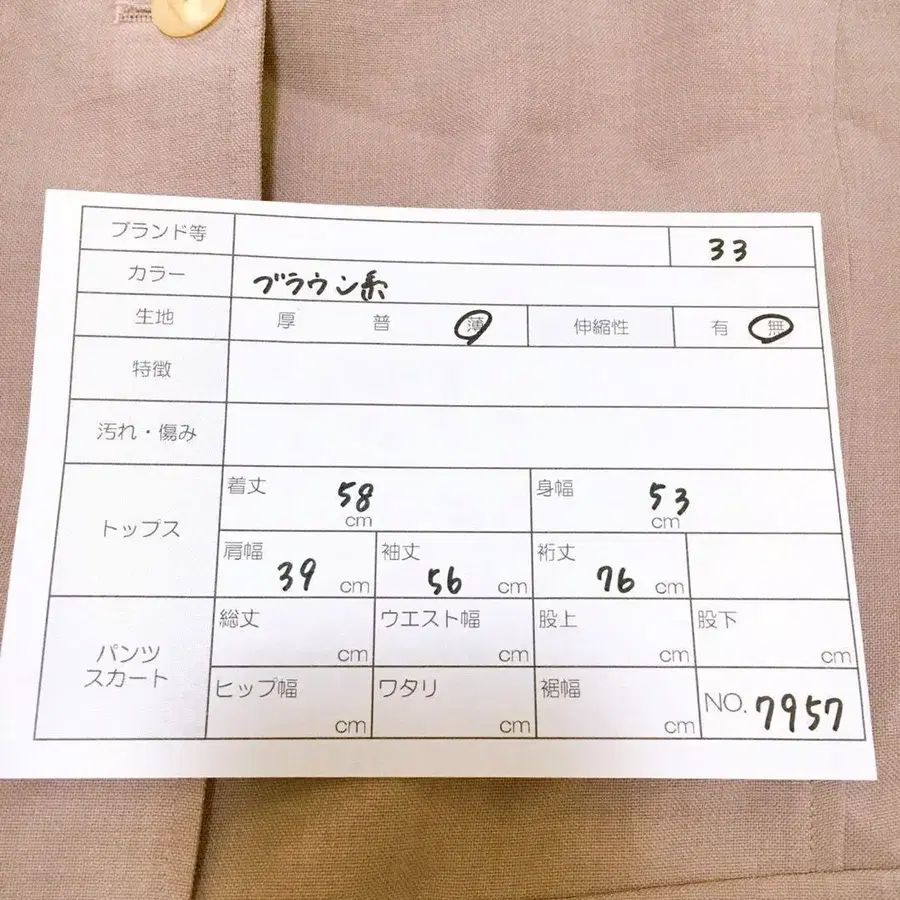 ブランド等 33
カラー ブラウン系
生地 厚 普 薄 伸縮性 有 無
特徴
汚れ・傷み
トップス
着丈 58 cm 身幅 53 cm
肩幅 39 cm 袖丈 56 cm 裄丈 76 cm
パンツ
スカート
総丈 cm ウエスト幅 cm 股上 cm 股下 cm
ヒップ幅 cm ワタリ cm 裾幅 cm NO. 7957